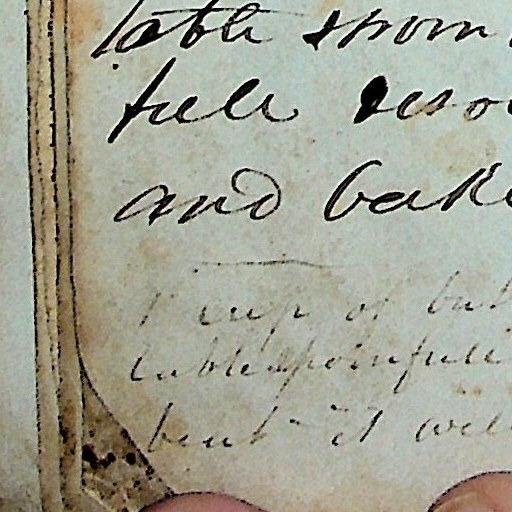 table spoon
full
and bake
1 cup of but
tablespoonfull
beat it well